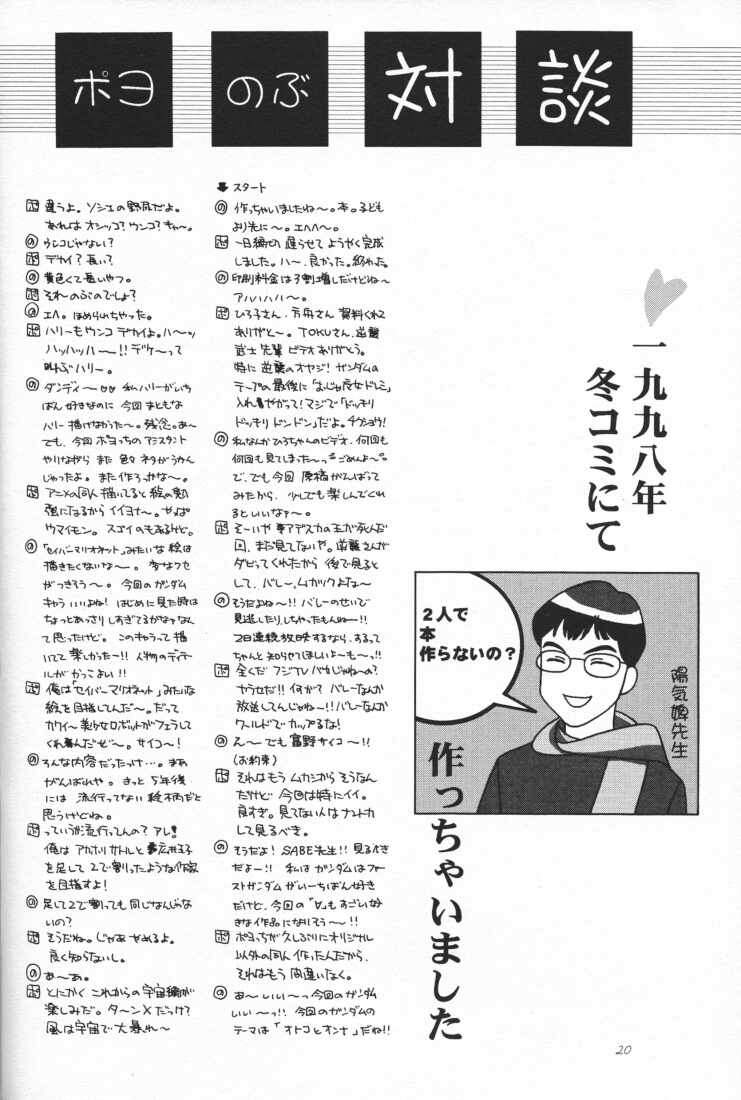 ポヨ のぶ 対 談
一九九八年
冬コミにて
2人で
本
作らないの？
陽気婢先生
作っちゃいました
スタート
の 作っちゃいましたね〜。本。子ども
より先に〜。エヘヘ〜。
ポ 一日締切 遅らせて ようやく完成
しました。ハ〜、良かった。終わった。
の 印刷料金は3割増しだけどね〜
アハハハハ〜。
ポ ひろ子さん、方舟さん 資料くれて
ありがと〜。TOKUさん、逆襲
武士先輩 ビデオありがとう。
特に 逆襲のオヤジ！ガンダムの
テープの最後に「おジャ魔女ドレミ」
入れやがって！マジで「ドッキリ
ドッキリ ドンドン」だよ。チクショウ！
の 私なんか ひろちゃんのビデオ、何回も
何回も見てしまった〜ごめんよ〜。
で、でも今回 原稿がんばって
みたから、少しでも楽しんでくれ
るといいなァ〜。
ポ そーいや アデスカの王が死んだ
回、まだ見てないや。逆襲さんが
ダビってくれたから 後で見ると
して、バレー、ムカツクよな〜
の そうだよね〜!! バレーのせいで
見逃したりしちゃったもんね〜!!
2日連続放映するなら、するって
ちゃんと知らせてほしいよ〜も〜っ!!
ポ 全くだ フジTVバカじゃね〜の？
やらせだ!! 何が？ バレーなんか
放送してんじゃね〜!! バレーなんか
ワールドでカップるな！
の ん〜 でも 富野サイコー!!
（お約束）
ポ それはもう ムカシから そうなん
だけど 今回は特にイイ。
良すぎ。見てない人は ナントカ
して見るべき。
の そうだよ！ SABE先生!! 見るべき
だよー!! 私は ガンダムはファー
ストガンダム がいーちばん好き
だけど、今回の「∀」もすごい好
きな作品になりそう〜〜!!
ポ ポヨっちが久しぶりにオリジナル
以外の同人 作ったんだから、
それはもう 間違いなく。
の あ〜いい〜っ 今回のガンダム
いい〜っ!! 今回のガンダムの
テーマは「オトコとオンナ」だね!!
ポ 違うよ。ソシエの野尻だよ。
あれは オシッコ？ウンコ？キャ〜。
の ウンコじゃない？
ポ デカイ？長い？
の 黄色くて長いやつ。
ポ それ〜のぶのでしょ？
の エヘ。ほめられちゃった。
ポ ハリーもウンコ デカイよ。ハ〜ッ
ハッハッハ〜!! デケ〜って
叫ぶハリー。
の ダンディ〜 私ハリーがいち
ばん好きなのに 今回 まともな
ハリー 描けなかった〜。残念。あ〜
でも、今回 ポヨっちの アシスタント
やりながら また 色々 ネタがうかん
じゃったよ。また作ろっかな〜。
ポ アニメの同人 描いてると絵の勉
強になるから イイヨナ〜。やっぱ
ウマイモン。スゴイのもあるけど。
の 「セイバーマリオネット」みたいな 絵は
描きたくないな〜。変なクセ
がつきそう〜。今回のガンダム
キャラいいよね！はじめに見た時は
ちょっとあっさりしすぎてるかな？なん
て思ったけど。このキャラって描
いてて楽しかった〜!! 人物のディテ
ールがかっこよい!!
ポ 俺は「セイバーマリオネット」みたいな
絵を目指してんだ〜。だって
カワイー美少女ロボットがフェラして
くれるんだぜ〜。サイコー！
の そんな内容だったっけ…。まあ
がんばれや。きっと 5年後
には 流行ってない 絵柄だと
思うけどね。
ポ っていうか流行ってんの？アレ！
俺は アカホリサトルと広井王子
を足して 2で割ったような作家
を目指すよ！
の 足して2で割っても 同じなんじゃな
いの？
ポ そうだね。じゃあ やめるよ。
良く知らないし。
の あ〜あ。
ポ とにかく これからの宇宙編が
楽しみだ。ターンXだっけ？
風は宇宙で大暴れ〜
20